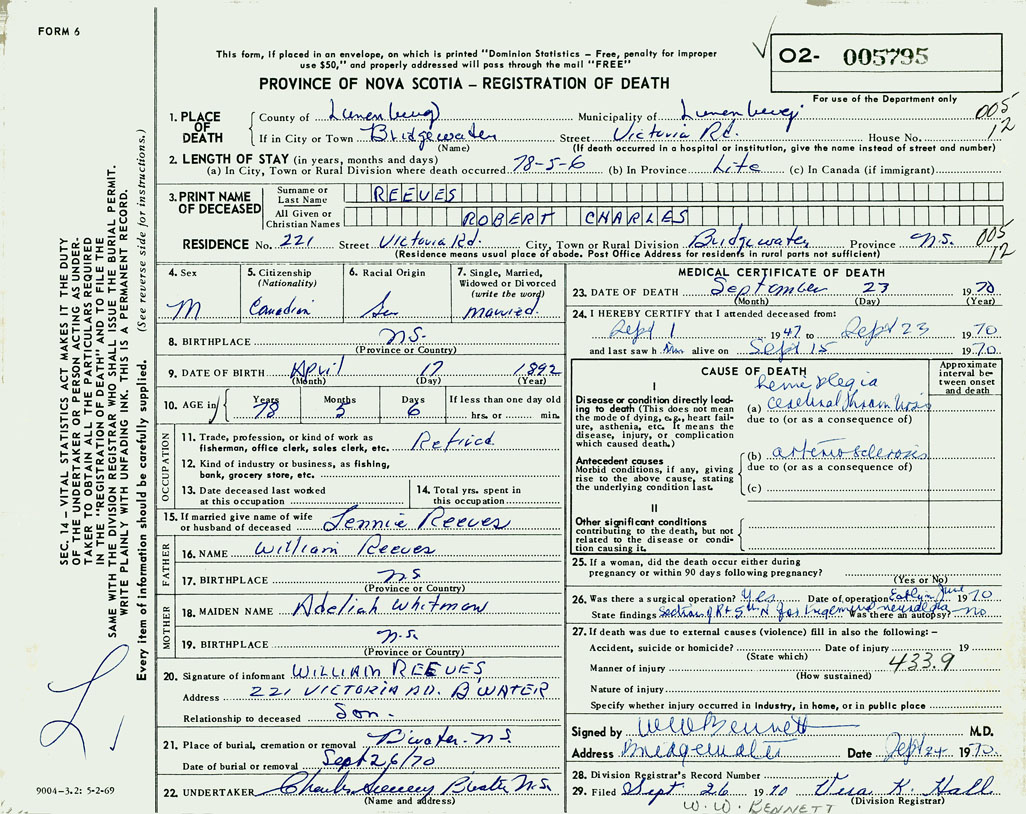 FORM 6
This form, if placed in an envelope, on which is printed "Dominion Statistics – Free, penalty for improper
use $50," and properly addressed will pass through the mail "FREE"
PROVINCE OF NOVA SCOTIA – REGISTRATION OF DEATH
O2- 005795
For use of the Department only
1. PLACE OF DEATH
County of Lunenburg Municipality of Lunenburg 005
If in City or Town Bridgewater Street Victoria Rd. House No. 12
(Name) (If death occurred in a hospital or institution, give the name instead of street and number)
2. LENGTH OF STAY (in years, months and days)
(a) In City, Town or Rural Division where death occurred 78-5-6 (b) In Province Life (c) In Canada (if immigrant)
3. PRINT NAME OF DECEASED
Surname or Last Name REEVES
All Given or Christian Names ROBERT CHARLES
RESIDENCE No. 221 Street Victoria Rd. City, Town or Rural Division Bridgewater Province N.S. 005
(Residence means usual place of abode. Post Office Address for residents in rural parts not sufficient) 12
4. Sex
M
5. Citizenship
(Nationality)
Canadian
6. Racial Origin
7. Single, Married,
Widowed or Divorced
(write the word)
Married.
8. BIRTHPLACE N.S.
(Province or Country)
9. DATE OF BIRTH April 17 1892
(Month) (Day) (Year)
10. AGE in
Years Months Days If less than one day old
78 5 6 hrs. or min.
OCCUPATION
11. Trade, profession, or kind of work as
fisherman, office clerk, sales clerk, etc. Retired.
12. Kind of industry or business, as fishing,
bank, grocery store, etc.
13. Date deceased last worked
at this occupation
14. Total yrs. spent in
this occupation
15. If married give name of wife
or husband of deceased Jennie Reeves
FATHER
16. NAME William Reeves
17. BIRTHPLACE N.S
(Province or Country)
MOTHER
18. MAIDEN NAME Adeliah Whitman
19. BIRTHPLACE N.S.
(Province or Country)
20. Signature of informant WILLIAM REEVES,
Address 221 VICTORIA RD. B'WATER
Relationship to deceased Son.
21. Place of burial, cremation or removal B'water. N.S.
Date of burial or removal Sept 26/70
22. UNDERTAKER N.S.
(Name and address)
MEDICAL CERTIFICATE OF DEATH
23. DATE OF DEATH September 23 1970
(Month) (Day) (Year)
24. I HEREBY CERTIFY that I attended deceased from:
Sept 1 1947 to Sept 23 1970
and last saw him alive on Sept 15 1970.
CAUSE OF DEATH
Approximate interval between onset and death
I
hemiplegia
Disease or condition directly leading to death (This does not mean the mode of dying, e.g., heart failure, asthenia, etc. It means the disease, injury, or complication which caused death.)
(a) cerebral thrombosis
due to (or as a consequence of)
Antecedent causes
Morbid conditions, if any, giving rise to the above cause, stating the underlying condition last.
(b) arteriosclerosis
due to (or as a consequence of)
(c)
II
Other significant conditions
contributing to the death, but not related to the disease or condition causing it.
25. If a woman, did the death occur either during
pregnancy or within 90 days following pregnancy?
(Yes or No)
26. Was there a surgical operation? Yes Date of operation Early in June 1970
State findings Section of Rt 5th N for trigeminal neuralgia Was there an autopsy? no
27. If death was due to external causes (violence) fill in also the following: –
Accident, suicide or homicide? Date of injury 19
(State which)
433.9
Manner of injury
(How sustained)
Nature of injury
Specify whether injury occurred in industry, in home, or in public place
Signed by W W Bennett M.D.
Address Bridgewater Date Sept 24 1970.
28. Division Registrar's Record Number
29. Filed Sept. 26 1970 Vera K. Hall
(Division Registrar)
W. W. BENNETT
SEC. 14 – VITAL STATISTICS ACT MAKES IT THE DUTY
OF THE UNDERTAKER OR PERSON ACTING AS UNDER-
TAKER TO OBTAIN ALL THE PARTICULARS REQUIRED
IN THE "REGISTRATION OF DEATH" AND TO FILE THE
SAME WITH THE DIVISION REGISTRAR WHO SHALL ISSUE THE BURIAL PERMIT.
WRITE PLAINLY WITH UNFADING INK. THIS IS A PERMANENT RECORD.
Every item of information should be carefully supplied. (See reverse side for instructions.)
9004-3.2: 5-2-69